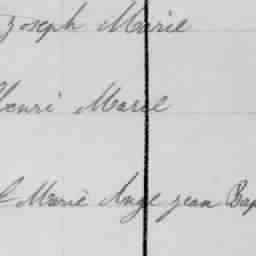 Joseph Marie
Henri Marcel
Marie Ange jean Bap